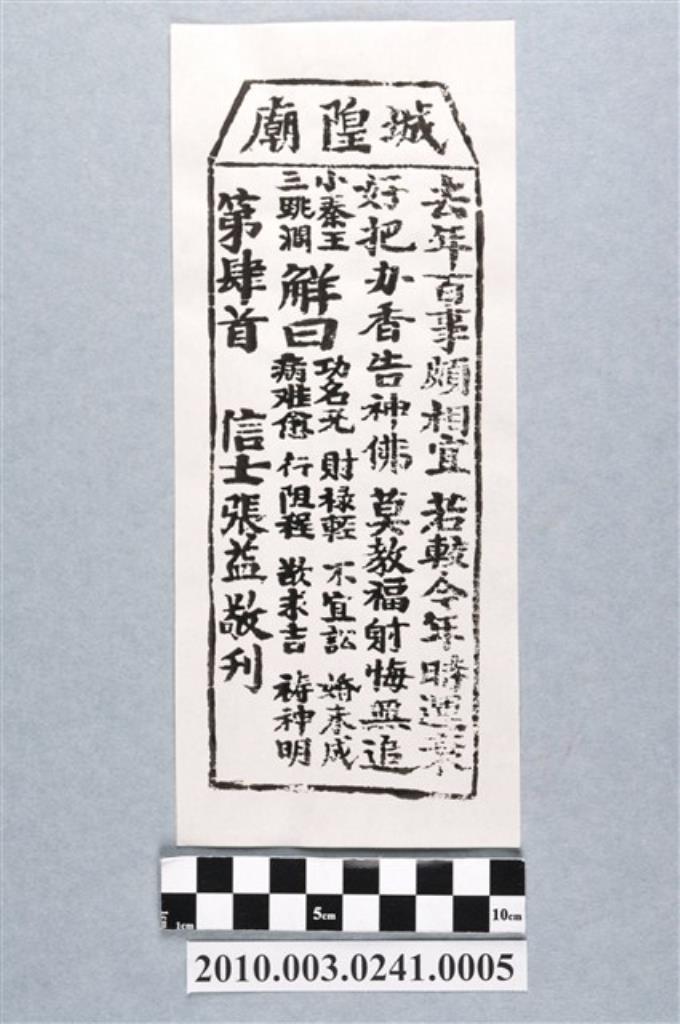 城隍廟
去年百事頗相宜 若較今年時運衰
好把办香告神佛 莫教福謝悔無追
小秦王
三跳澗
解曰
功名无 財祿輕 不宜訟 婚未成
病难愈 行阻程 欲求吉 祷神明
第肆首 信士張益敬刊
1cm 5cm 10cm
2010.003.0241.0005